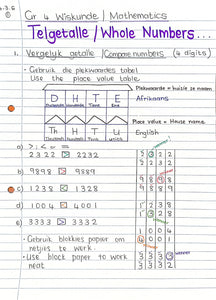 Gr 4 Wiskunde / Mathematics
Telgetalle / Whole Numbers...
1. Vergelyk getalle / Compare numbers (4 digits)
• Gebruik die plekwaardes tabel.
Use the place value table.
Plekwaarde = huisie se naam
D H T E
Afrikaans
Place value = House name
Th H T U
English
a) > ; < = =
2322 > 2232
b) 9898 > 9889
c) 1238 < 1328
d) 1004 < 4001
e) 3333 = 3332
• Gebruik blokkies papier om
netjies te werk.
• Use block paper to work
neat
2 3 2 2
2 2 3 2
9 8 9 8
9 8 8 9
1 2 3 8
1 3 2 8
1 0 0 4
4 0 0 1
3 3 3 3
3 3 3 2